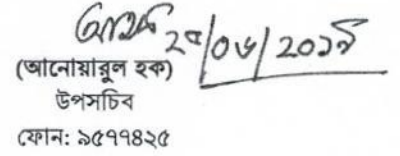 ২৫/০৬/২০১৭
(আনোয়ারুল হক)
উপসচিব
ফোন: ৯৫৭৭৪২৫